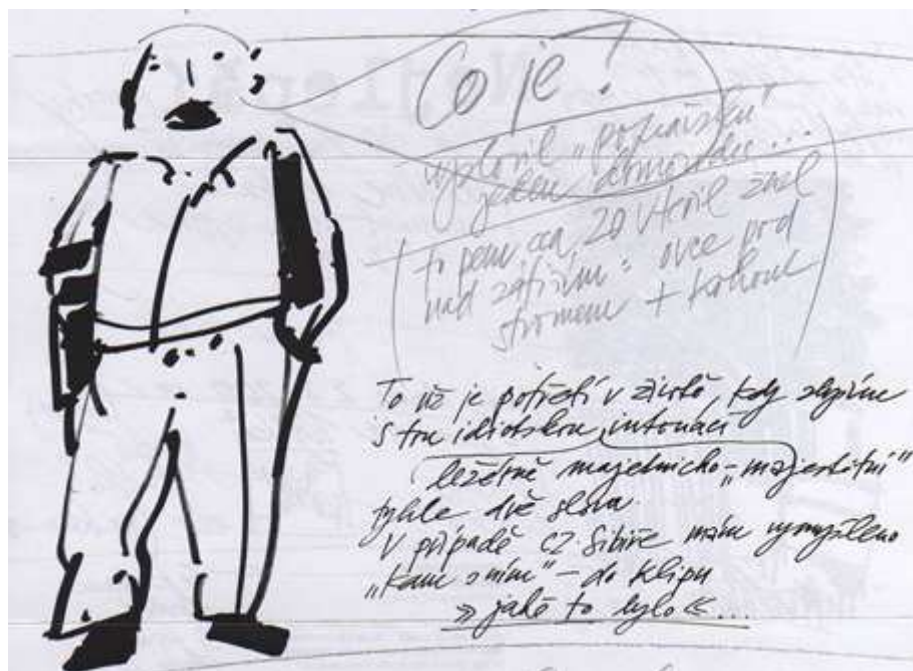 Co je?
vyslovil „
jeden domorodec...
to jsem cca 20 vteřil žasl
nad zátiším: ovce pod
stromem + kohout
To už je potřetí v životě, kdy slyším
s tou idiotskou intonací
majetnicko-„majestátní"
tyhle dvě slova.
V případě CZ-Sibiře mám vymyšleno
„kam s ním" – do klipu
» jaké to bylo « ...